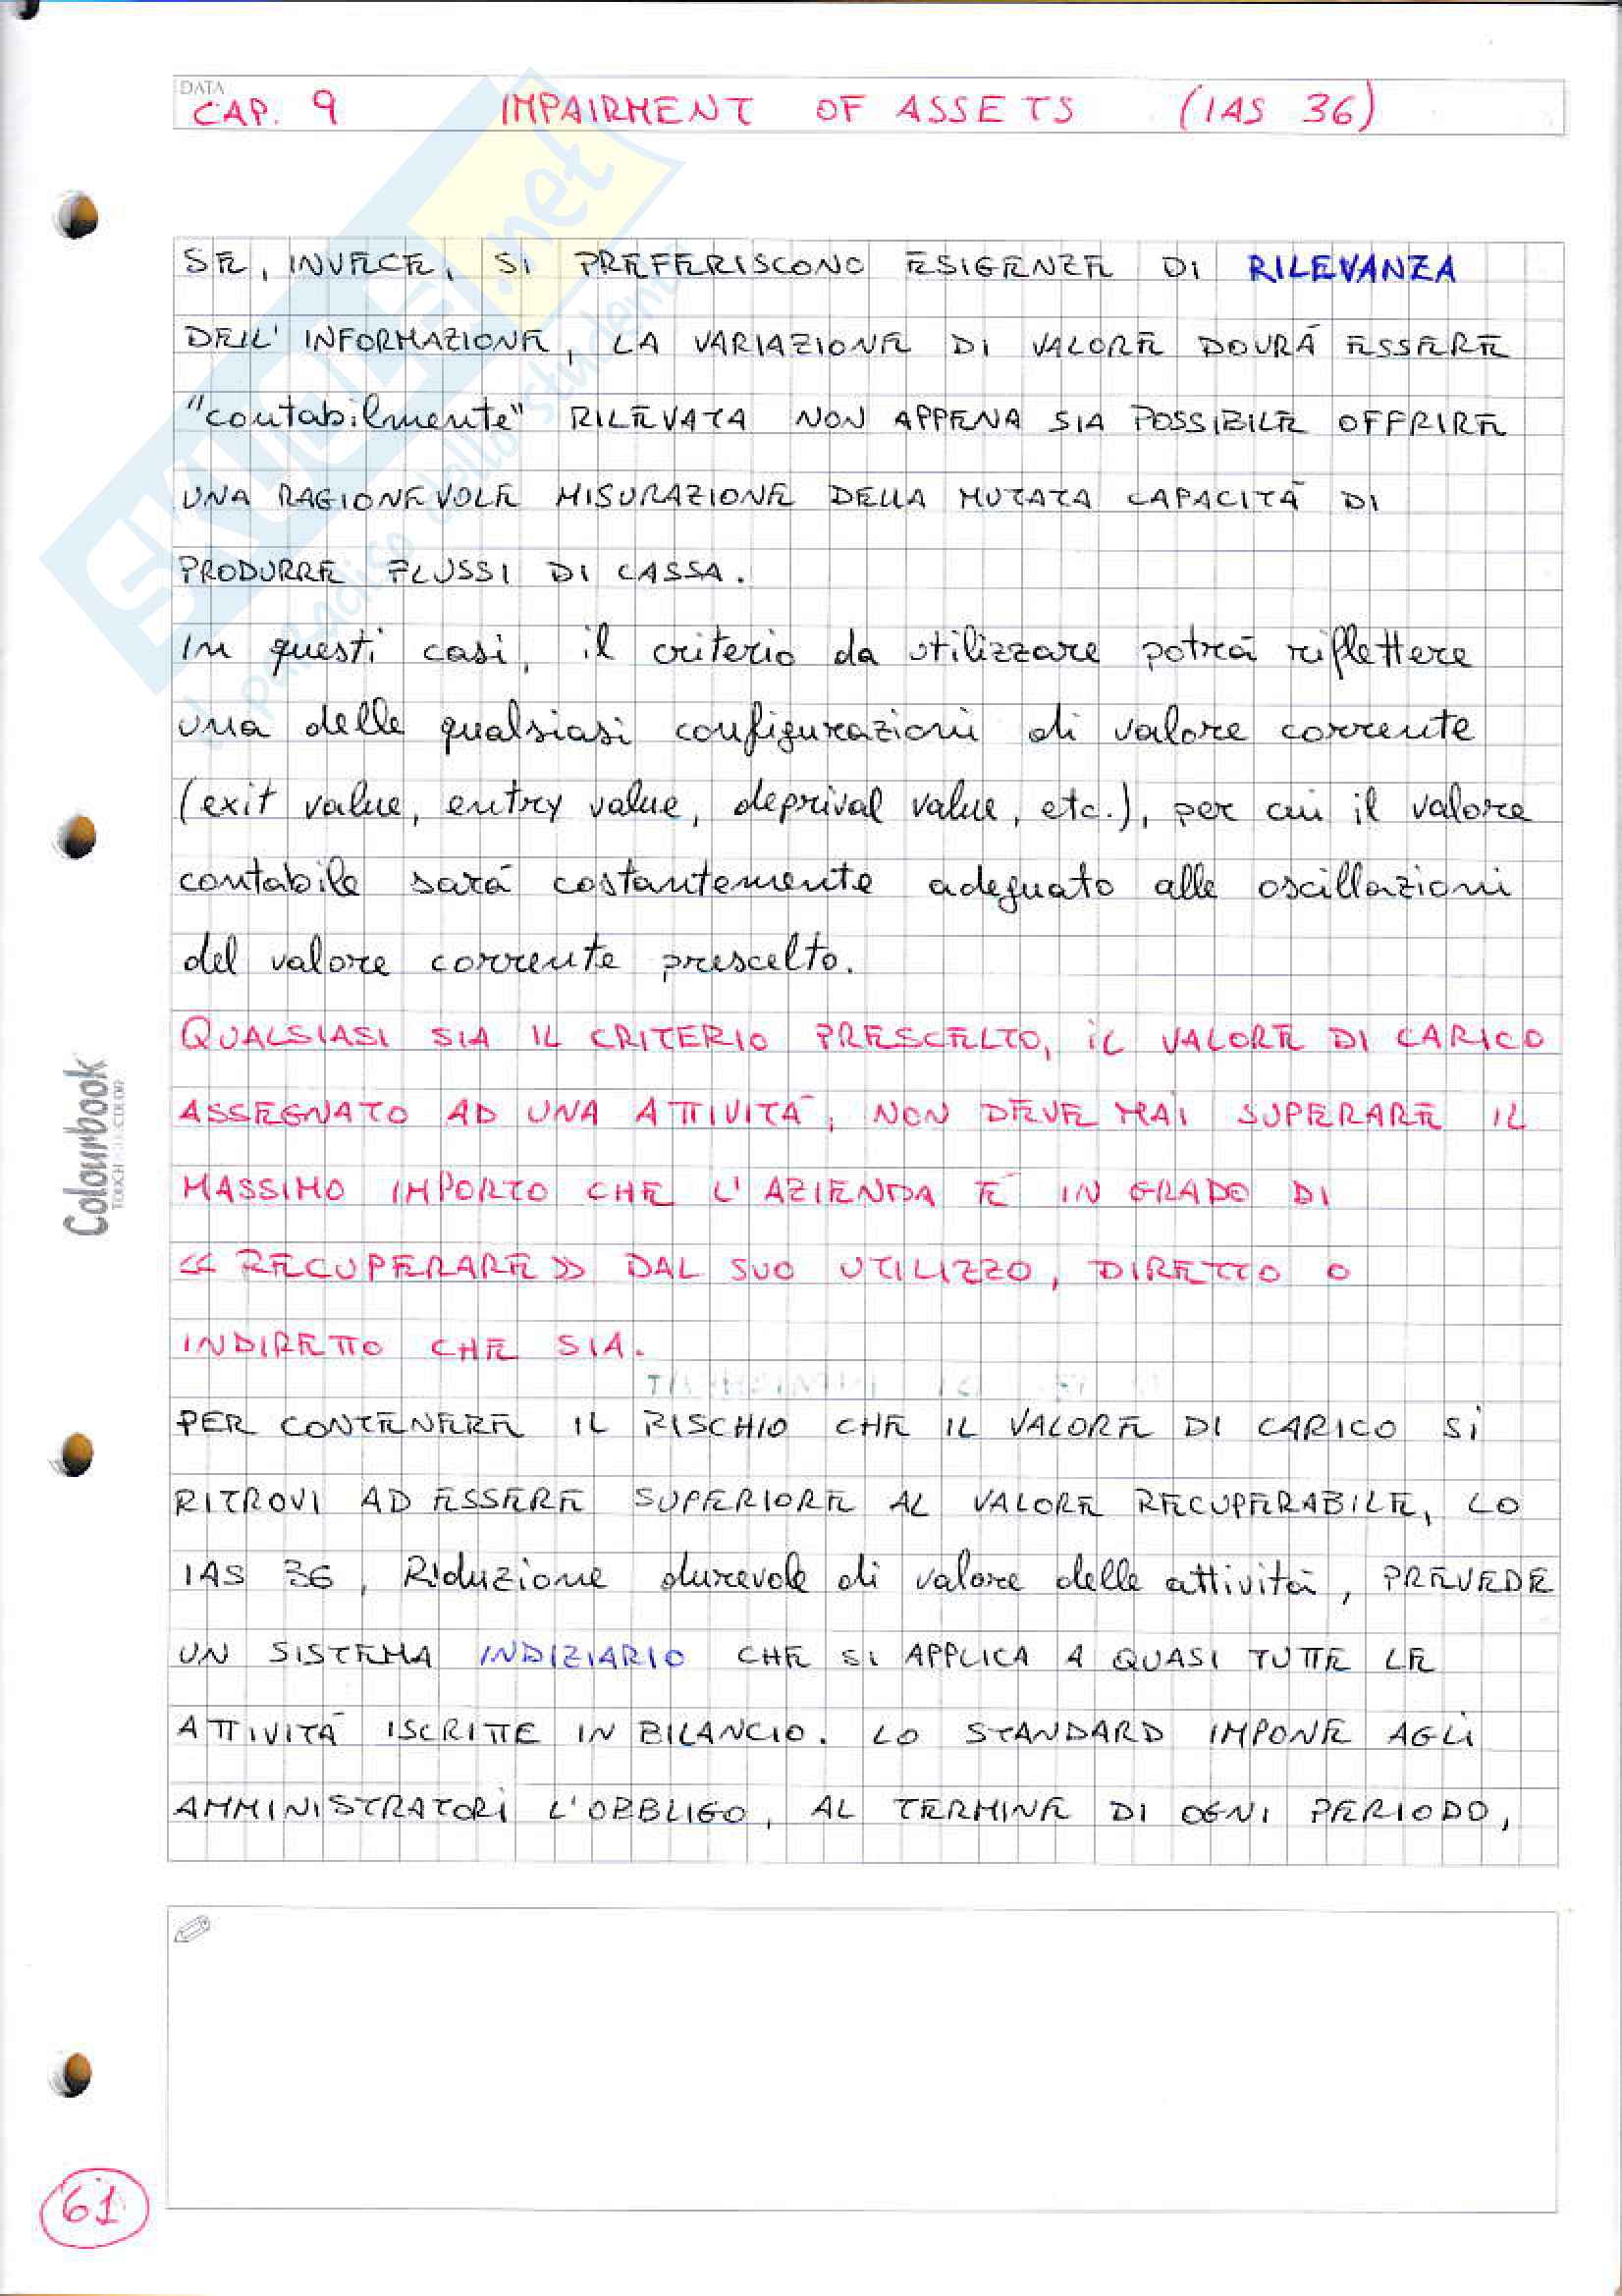 DATA
CAP. 9 IMPAIRMENT OF ASSETS (IAS 36)
SE, INVECE, SI PREFERISCONO ESIGENZE DI RILEVANZA
DELL'INFORMAZIONE, LA VARIAZIONE DI VALORE DOVRÀ ESSERE
"contabilmente" RILEVATA NON APPENA SIA POSSIBILE OFFRIRE
UNA RAGIONEVOLE MISURAZIONE DELLA MUTATA CAPACITÀ DI
PRODURRE FLUSSI DI CASSA.
In questi casi, il criterio da utilizzare potrà riflettere
una delle qualsiasi configurazioni di valore corrente
(exit value, entry value, deprival value, etc.), per cui il valore
contabile sarà costantemente adeguato alle oscillazioni
del valore corrente prescelto.
QUALSIASI SIA IL CRITERIO PRESCELTO, IL VALORE DI CARICO
ASSEGNATO AD UNA ATTIVITÀ, NON DEVE MAI SUPERARE IL
MASSIMO IMPORTO CHE L'AZIENDA È IN GRADO DI
«RECUPERARE» DAL SUO UTILIZZO, DIRETTO O
INDIRETTO CHE SIA.
PER CONTENERE IL RISCHIO CHE IL VALORE DI CARICO SI
RITROVI AD ESSERE SUPERIORE AL VALORE RECUPERABILE, LO
IAS 36, Riduzione durevole di valore delle attività, PREVEDE
UN SISTEMA INDIZIARIO CHE SI APPLICA A QUASI TUTTE LE
ATTIVITÀ ISCRITTE IN BILANCIO. LO STANDARD IMPONE AGLI
AMMINISTRATORI L'OBBLIGO, AL TERMINE DI OGNI PERIODO,
61
Colourbook
SKUOLA.net
il paradiso dello studente